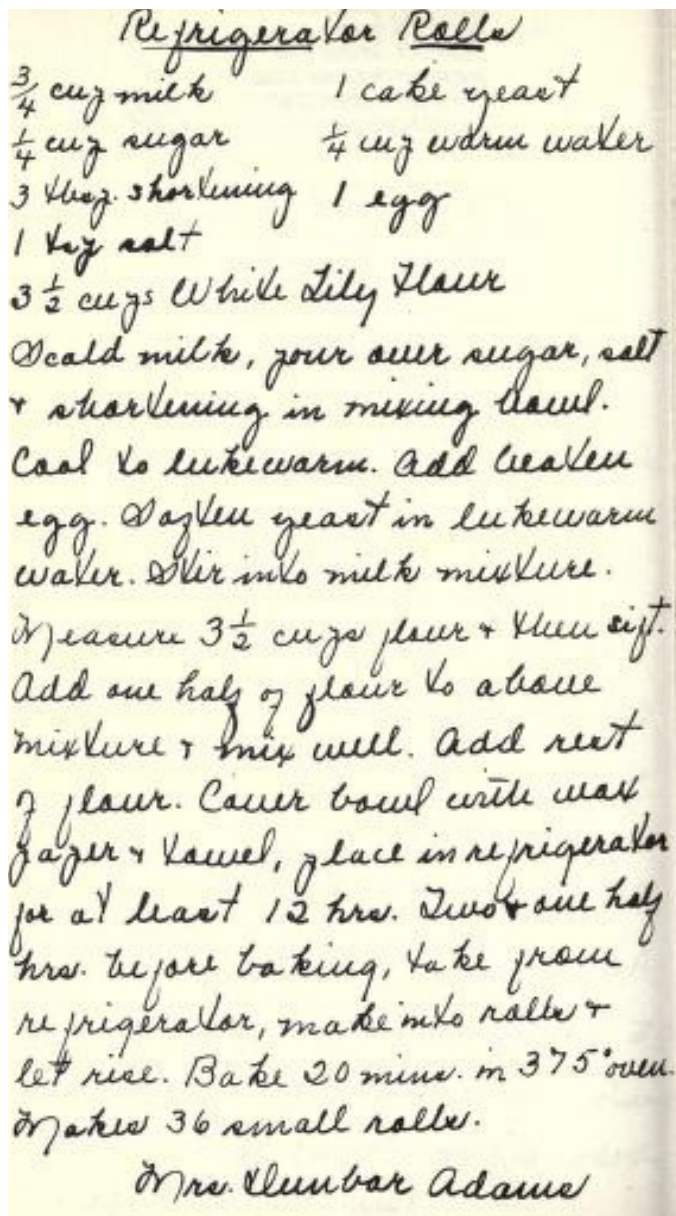 Refrigerator Rolls
3/4 cup milk 1 cake yeast
1/4 cup sugar 1/4 cup warm water
3 tbsp. shortening 1 egg
1 tsp salt
3 1/2 cups White Lily Flour
Scald milk, pour over sugar, salt
& shortening in mixing bowl.
Cool to lukewarm. Add beaten
egg. Soften yeast in lukewarm
water. Stir into milk mixture.
Measure 3 1/2 cups flour & then sift.
Add one half of flour to above
mixture & mix well. Add rest
of flour. Cover bowl with wax
paper & towel, place in refrigerator
for at least 12 hrs. Two & one half
hrs. before baking, take from
refrigerator, make into rolls &
let rise. Bake 20 mins. in 375° oven.
Makes 36 small rolls.
Mrs. Dunbar Adams